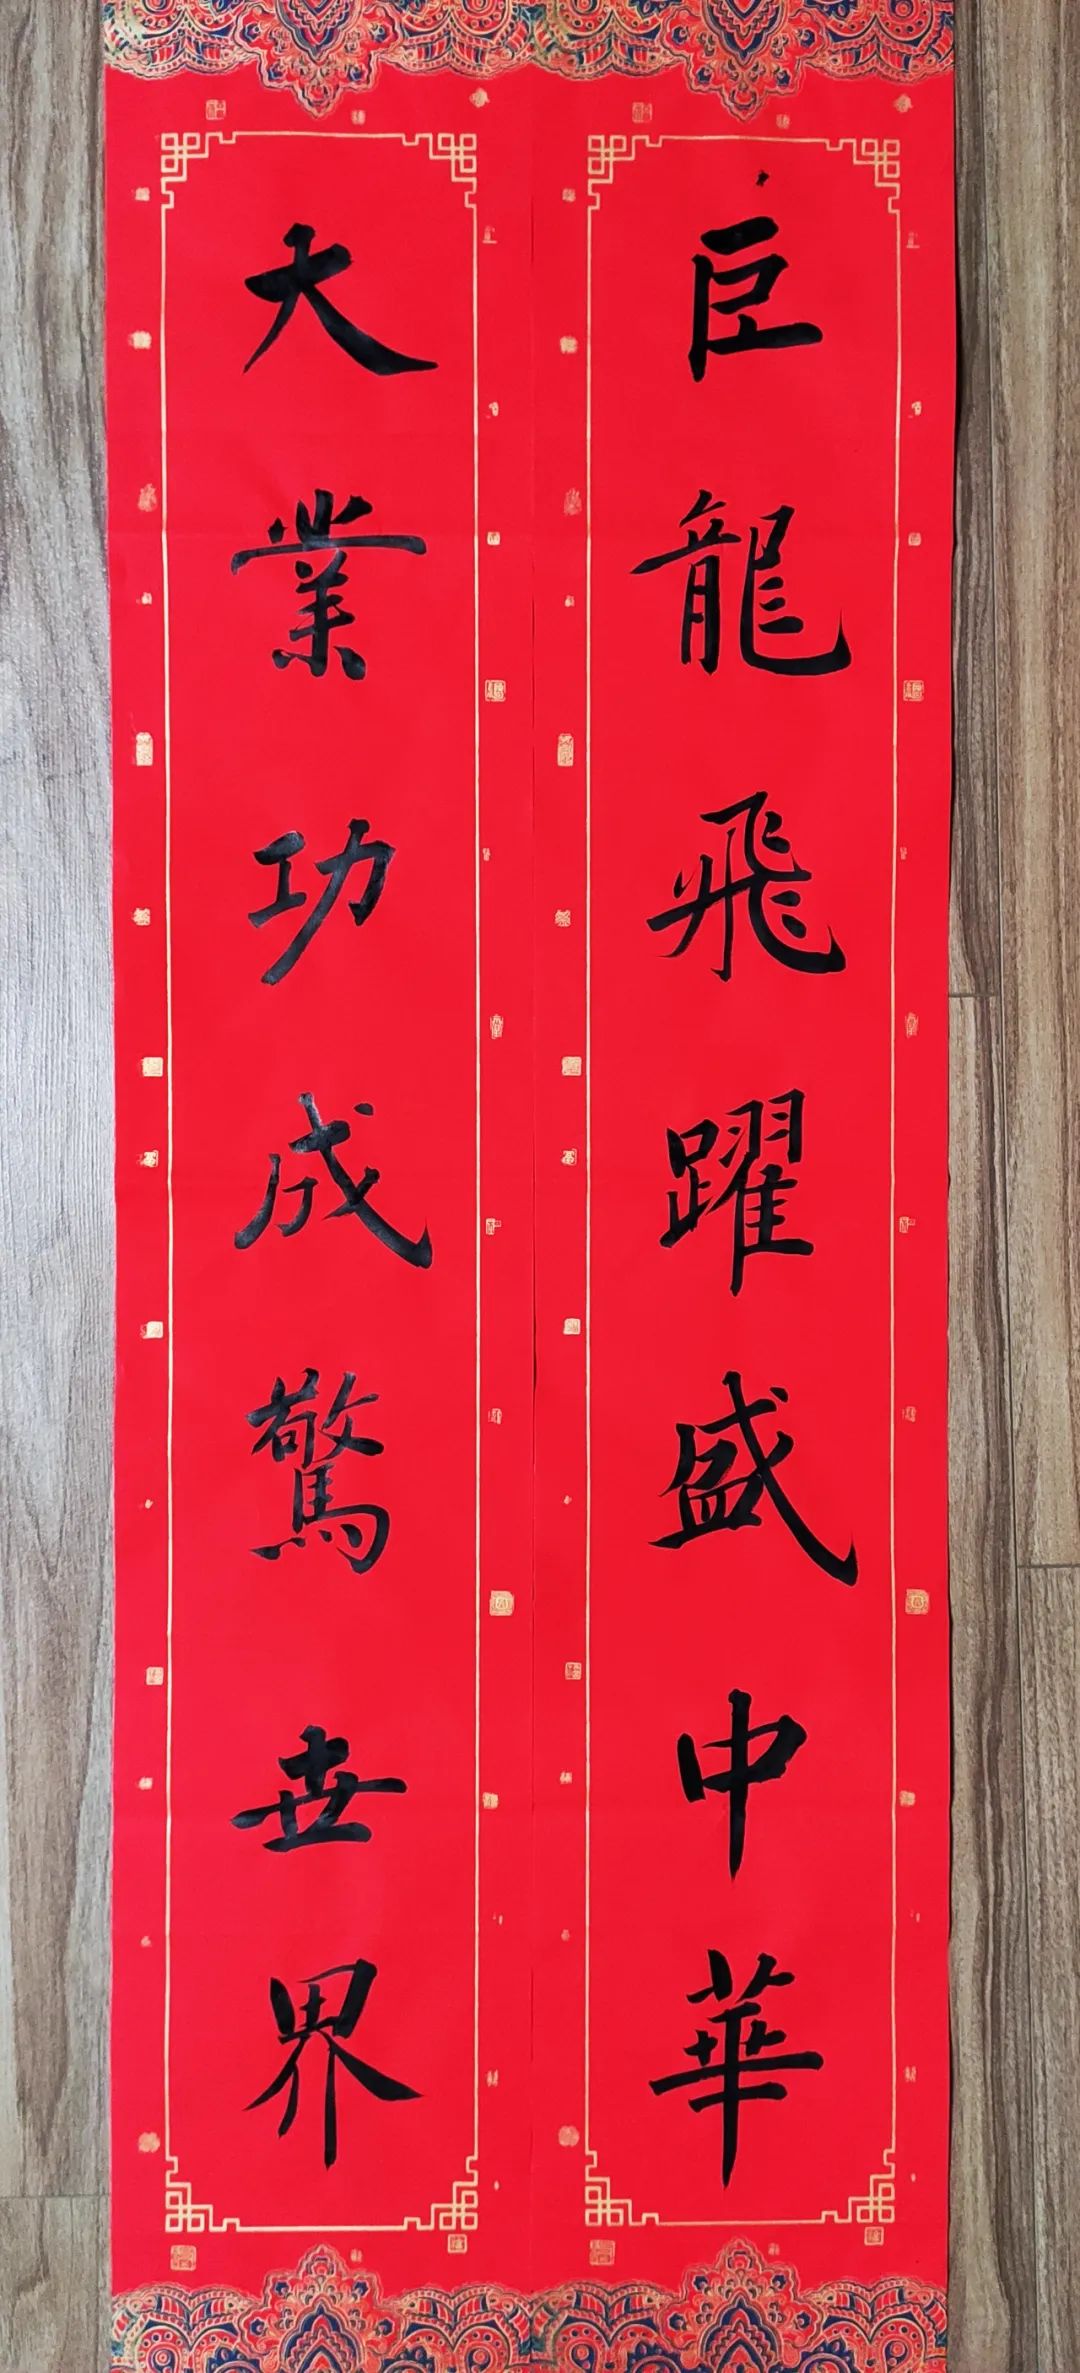 巨龍飛躍盛中華
大業功成驚世界